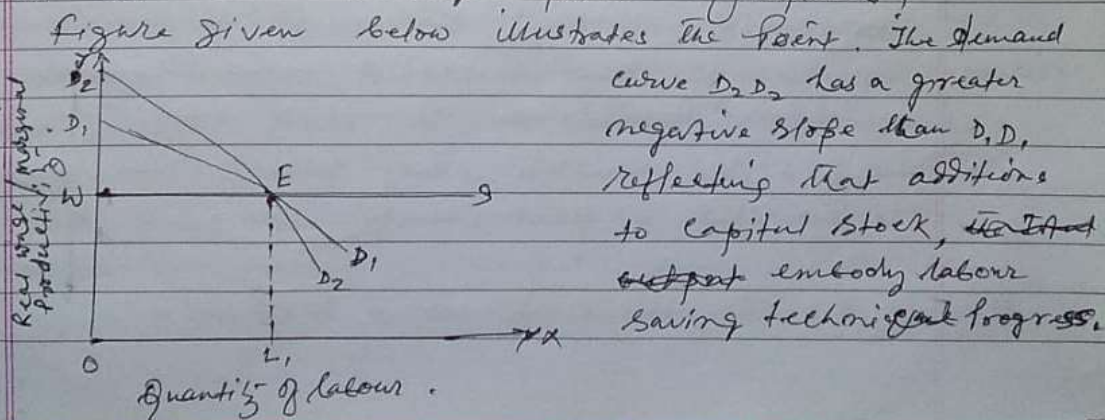 figure given below illustrates the point. The demand
curve D₂D₂ has a greater
negative slope than D₁D₁
reflecting that additions
to capital stock,
embody labour
saving technical progress.
Y
D₂
D₁
W
E
S
D₁
D₂
O
L₁
X
Real wage / marginal
productivity
Quantity of labour.